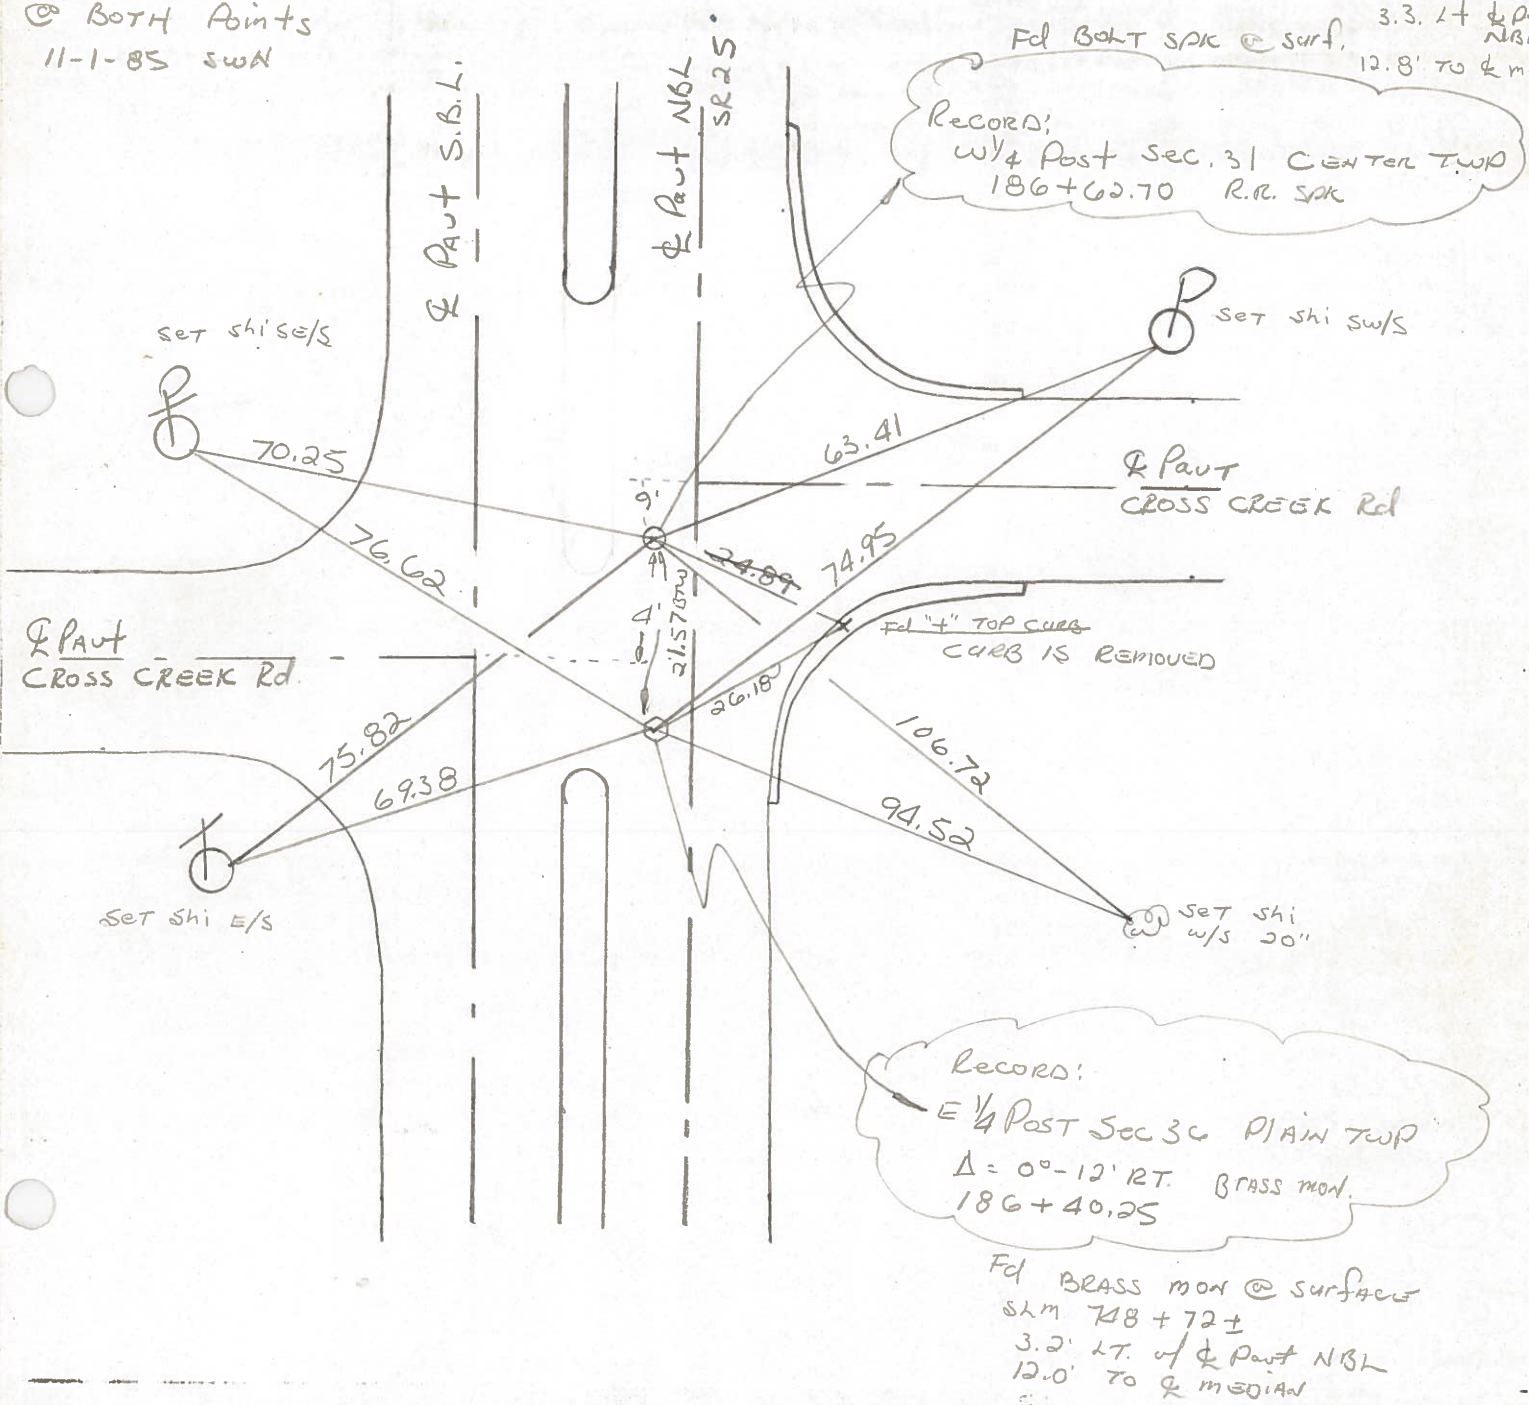 @ BOTH Points
11-1-85 SWN
℄ PAVT S.B.L.
℄ Pavt NBL
SR25
Fd BOLT SPK @ surf.
3.3. Lt ℄
12.8' TO ℄
RECORD:
W¼ Post Sec. 31 CENTER TWP
186+62.70 R.R. SPK
SET Shi SE/S
SET Shi SW/S
70.25
63.41
76.62
9'
24.89
74.95
℄ Pavt
CROSS CREEK Rd
4'
21.57 BTW
Fd "+" TOP CURB
CURB IS REMOVED
℄ PAVT
CROSS CREEK Rd.
26.18
75.82
69.38
106.72
94.52
SET Shi E/S
SET Shi
W/S 20"
RECORD:
E ¼ POST SEC 36 PLAIN TWP
Δ = 0°-12' RT. BRASS MON.
186+40.25
Fd BRASS MON @ SURFACE
SLM 748+72±
3.2' LT. of ℄ Pavt NBL
12.0' TO ℄ MEDIAN